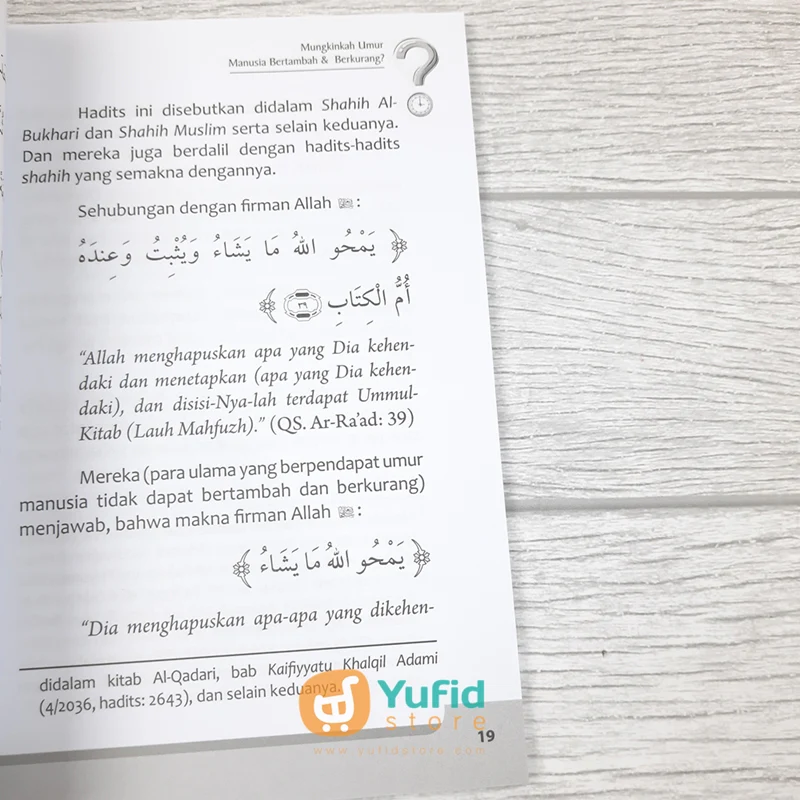 Mungkinkah Umur
Manusia Bertambah & Berkurang?
Hadits ini disebutkan didalam Shahih Al-
Bukhari dan Shahih Muslim serta selain keduanya.
Dan mereka juga berdalil dengan hadits-hadits
shahih yang semakna dengannya.
Sehubungan dengan firman Allah :
﴿ يَمْحُو اللَّهُ مَا يَشَاءُ وَيُثْبِتُ وَعِندَهُ
أُمُّ الْكِتَابِ ٣٩ ﴾
“Allah menghapuskan apa yang Dia kehen-
daki dan menetapkan (apa yang Dia kehen-
daki), dan disisi-Nya-lah terdapat Ummul-
Kitab (Lauh Mahfuzh).” (QS. Ar-Ra’ad: 39)
Mereka (para ulama yang berpendapat umur
manusia tidak dapat bertambah dan berkurang)
menjawab, bahwa makna firman Allah :
﴿ يَمْحُو اللَّهُ مَا يَشَاءُ ﴾
“Dia menghapuskan apa-apa yang dikehen-
didalam kitab Al-Qadari, bab Kaifiyyatu Khalqil Adami
(4/2036, hadits: 2643), dan selain keduanya.
Yufid
store
www.yufidstore.com
19